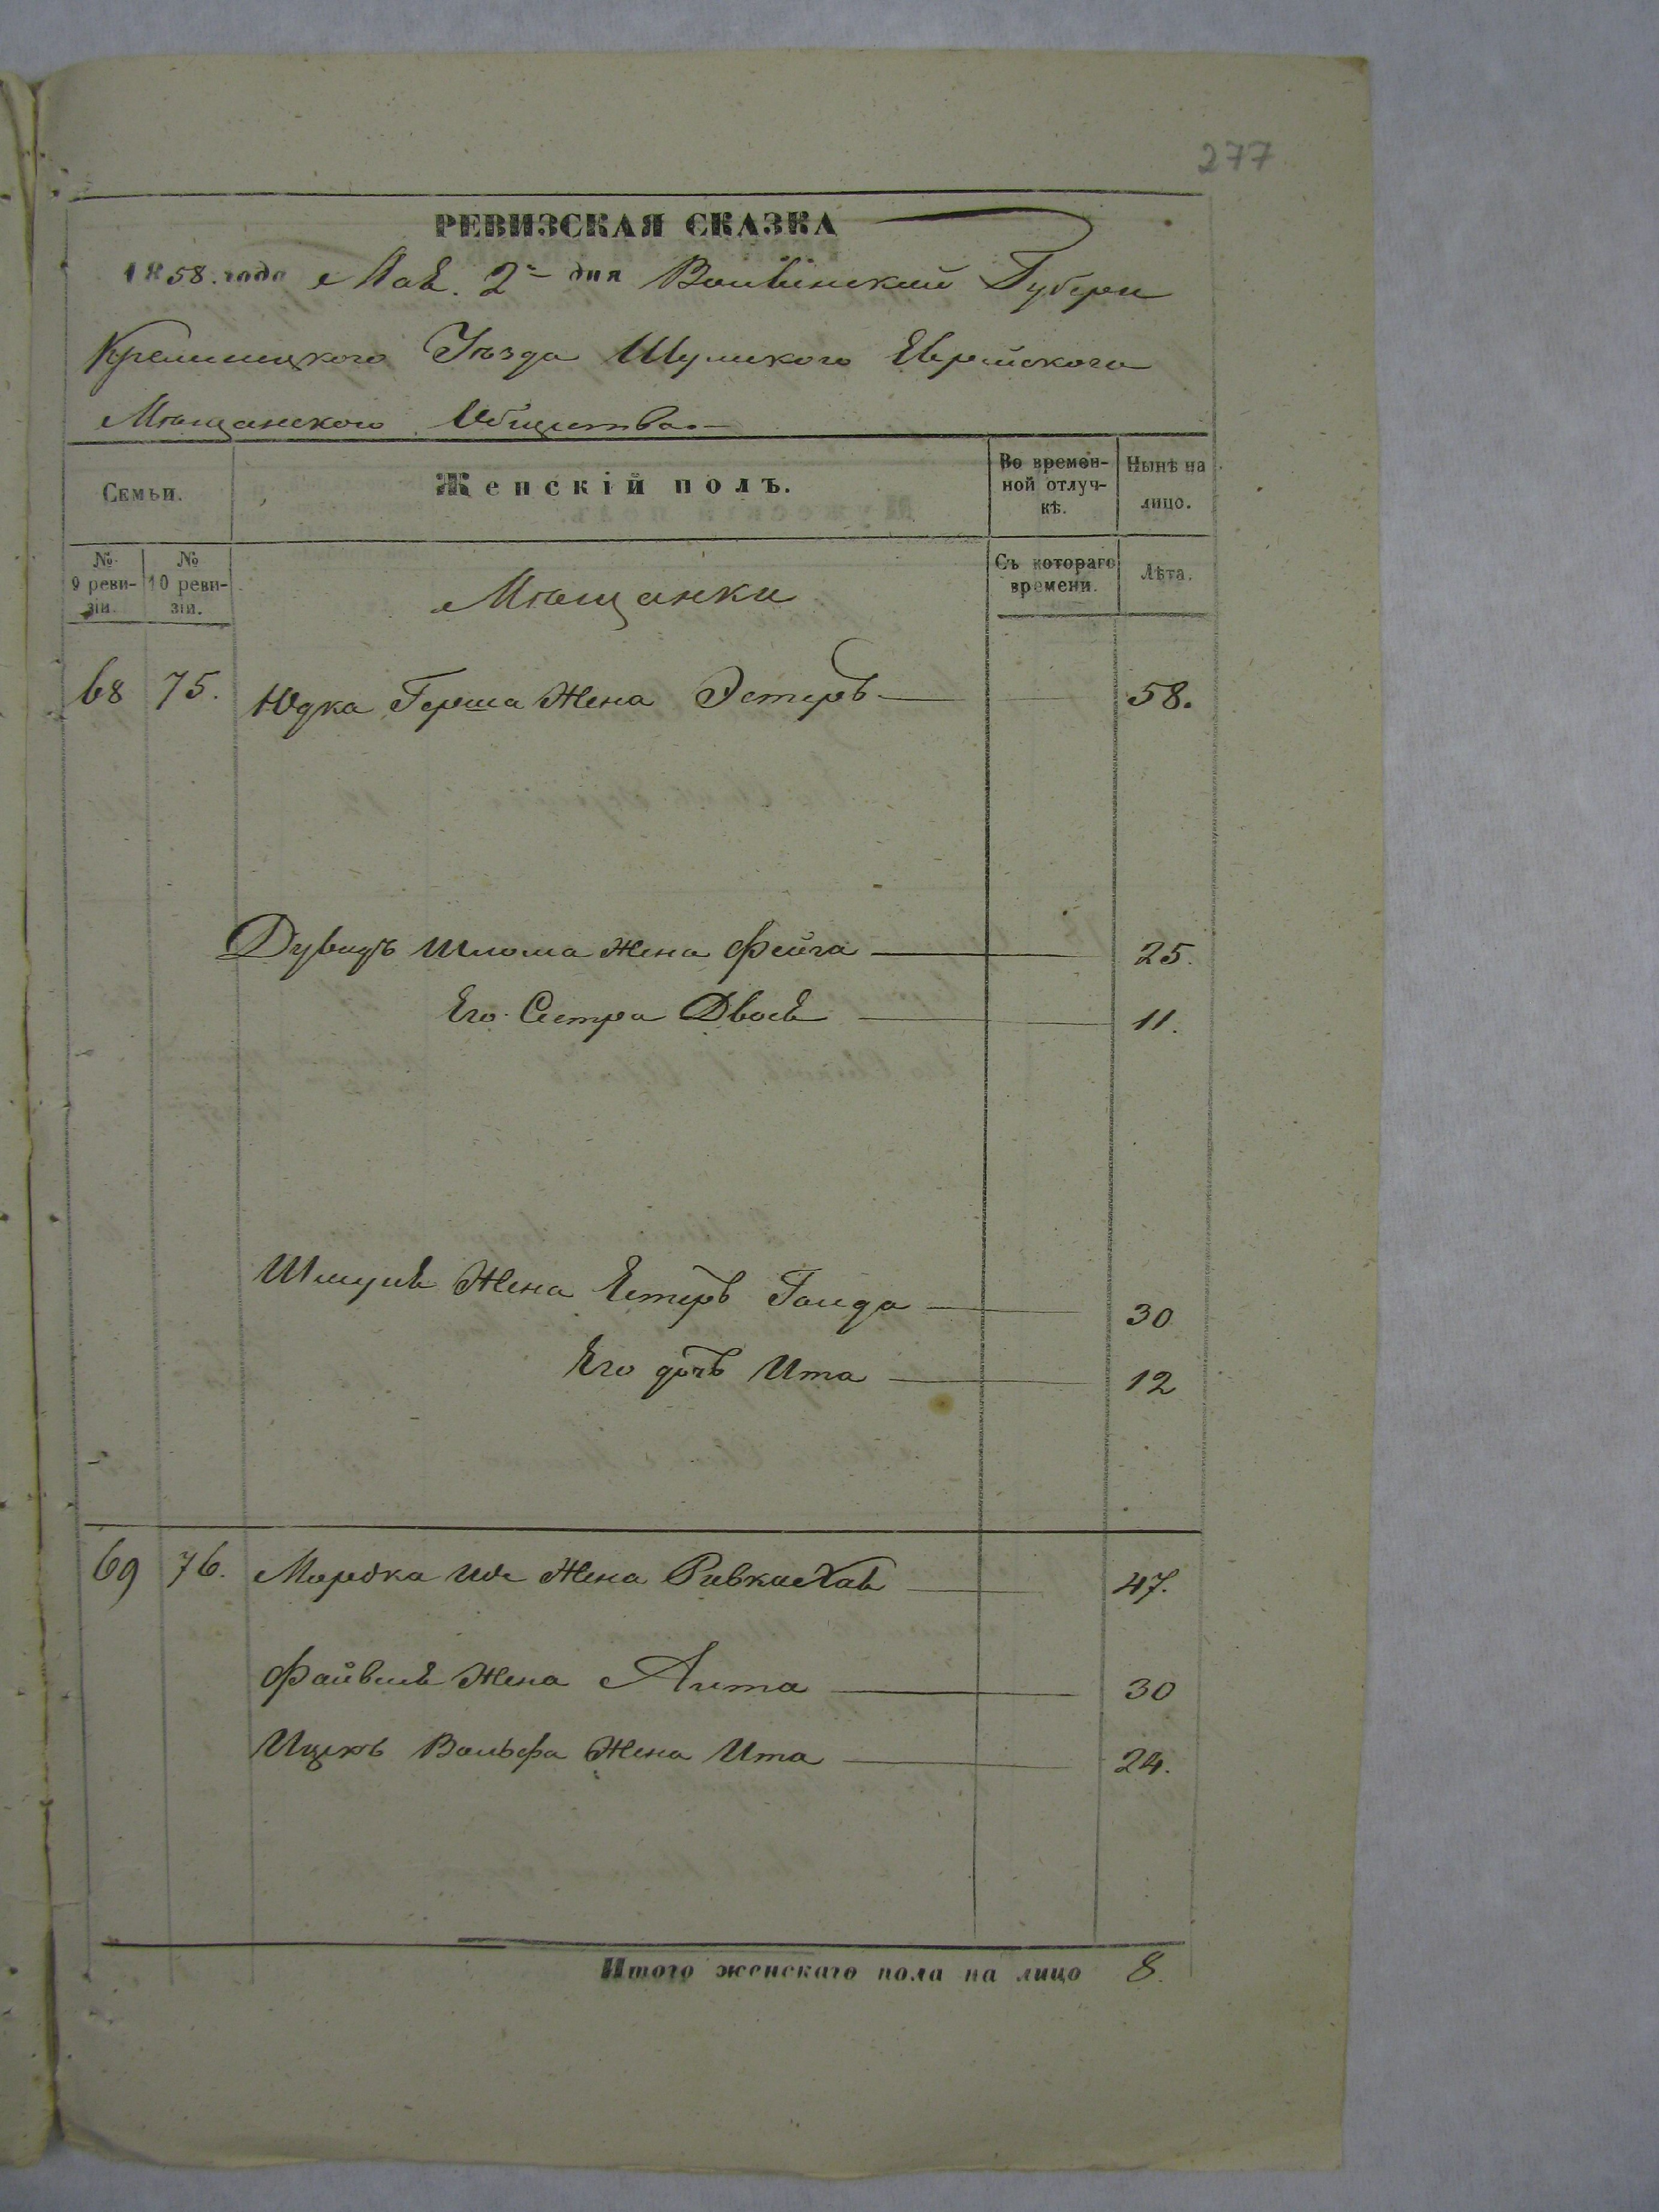 277
РЕВИЗСКАЯ СКАЗКА
1858. года Маѣ. 2го дня Волынской Губерн
Кременецкого Уѣзда Шумского Еврейского
Мѣщанского Общества.—
Семьи.
Женскій полъ.
Во времен-
ной отлуч-
кѣ.
Нынѣ на
лицо.
№
9 реви-
зіи.
№
10 реви-
зіи.
Мѣщанки
Съ котораго
времени.
Лѣта.
68 75. Юдка Герша Жена Эстеръ — 58.
Дувидъ Шлома Жена Фейга — 25.
Его Сестра Двося — 11.
Шмуля Жена Естеръ Голда — 30
Его дочь Ита — 12
69 76. Мордка Жена Ривка Хая — 47.
Файвиля Жена — 30
Ицкъ Вольфа Жена Ита — 24.
Итого женскаго пола на лицо 8.